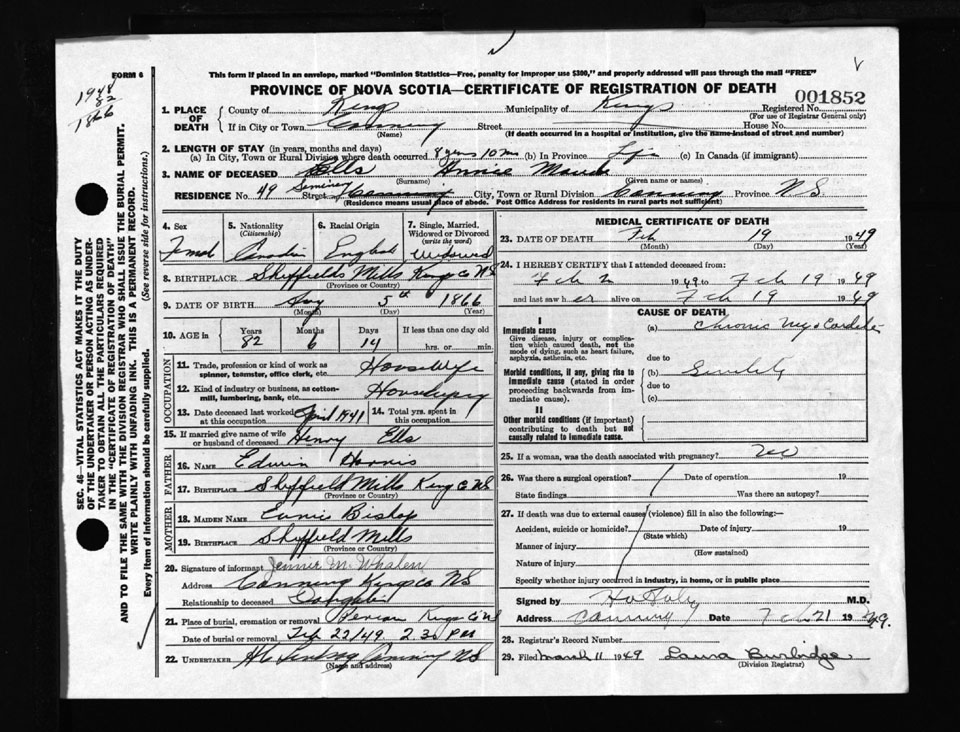 1948
82
1866
FORM 6
This form if placed in an envelope, marked "Dominion Statistics—Free, penalty for improper use $300," and properly addressed will pass through the mail "FREE"
PROVINCE OF NOVA SCOTIA—CERTIFICATE OF REGISTRATION OF DEATH
001852
1. PLACE OF DEATH
County of Kings Municipality of Kings Registered No.
(For use of Registrar General only)
If in City or Town Canning Street House No.
(Name) (If death occurred in a hospital or institution, give the name instead of street and number)
2. LENGTH OF STAY (in years, months and days)
(a) In City, Town or Rural Division where death occurred 8 yrs 10 m (b) In Province Life (c) In Canada (if immigrant)
3. NAME OF DECEASED Ells Annie Maude
(Surname) (Given name or names)
RESIDENCE No. 49 Street Seminary Canning City, Town or Rural Division Canning Province N.S.
(Residence means usual place of abode. Post Office Address for residents in rural parts not sufficient)
4. Sex
Femal
5. Nationality
(Citizenship)
Canadin
6. Racial Origin
English
7. Single, Married, Widowed or Divorced
(write the word)
Widowed
8. BIRTHPLACE Sheffields Mills Kings Co NS
(Province or Country)
9. DATE OF BIRTH Aug 5th 1866
(Month) (Day) (Year)
10. AGE in
Years Months Days If less than one day old
82 6 14 hrs. or min.
OCCUPATION
11. Trade, profession or kind of work as spinner, teamster, office clerk, etc. Housewife
12. Kind of industry or business, as cotton-mill, lumbering, bank, etc. Housekeeping
13. Date deceased last worked at this occupation April 1941
14. Total yrs. spent in this occupation
15. If married give name of wife or husband of deceased Henry Ells
FATHER
16. NAME Edwin Harris
17. BIRTHPLACE Sheffield Mills King Co NS
(Province or Country)
MOTHER
18. MAIDEN NAME Eunie Bishop
19. BIRTHPLACE Sheffield Mills
(Province or Country)
20. Signature of informant Jennie M. Whalen
Address Canning Kings Co NS
Relationship to deceased Daughter
21. Place of burial, cremation or removal Kings Co NS
Date of burial or removal Feb 22/49 2.30 PM
22. UNDERTAKER Canning NS
(Name and address)
MEDICAL CERTIFICATE OF DEATH
23. DATE OF DEATH Feb 19 1949
(Month) (Day) (Year)
24. I HEREBY CERTIFY that I attended deceased from:
Feb 2 1949 to Feb 19 1949
and last saw her alive on Feb 19 1949
CAUSE OF DEATH
I
Immediate cause
Give disease, injury or complication which caused death, not the mode of dying, such as heart failure, asphyxia, asthenia, etc.
(a) Chronic Myocarditis
due to
Morbid conditions, if any, giving rise to immediate cause (stated in order proceeding backwards from immediate cause).
(b) Senility
due to
(c)
II
Other morbid conditions (if important) contributing to death but not causally related to immediate cause.
25. If a woman, was the death associated with pregnancy? No
26. Was there a surgical operation? Date of operation 19
State findings Was there an autopsy?
27. If death was due to external causes (violence) fill in also the following:—
Accident, suicide or homicide? Date of injury 19
(State which)
Manner of injury
(How sustained)
Nature of injury
Specify whether injury occurred in industry, in home, or in public place
Signed by M.D.
Address Canning Date Feb 21 1949.
28. Registrar's Record Number
29. Filed March 11 1949 Laura Burbidge
(Division Registrar)
SEC. 46—VITAL STATISTICS ACT MAKES IT THE DUTY OF THE UNDERTAKER OR PERSON ACTING AS UNDERTAKER TO OBTAIN ALL THE PARTICULARS REQUIRED IN THE "CERTIFICATE OF REGISTRATION OF DEATH"
AND TO FILE THE SAME WITH THE DIVISION REGISTRAR WHO SHALL ISSUE THE BURIAL PERMIT.
WRITE PLAINLY WITH UNFADING INK. THIS IS A PERMANENT RECORD.
Every item of information should be carefully supplied. (See reverse side for instructions.)